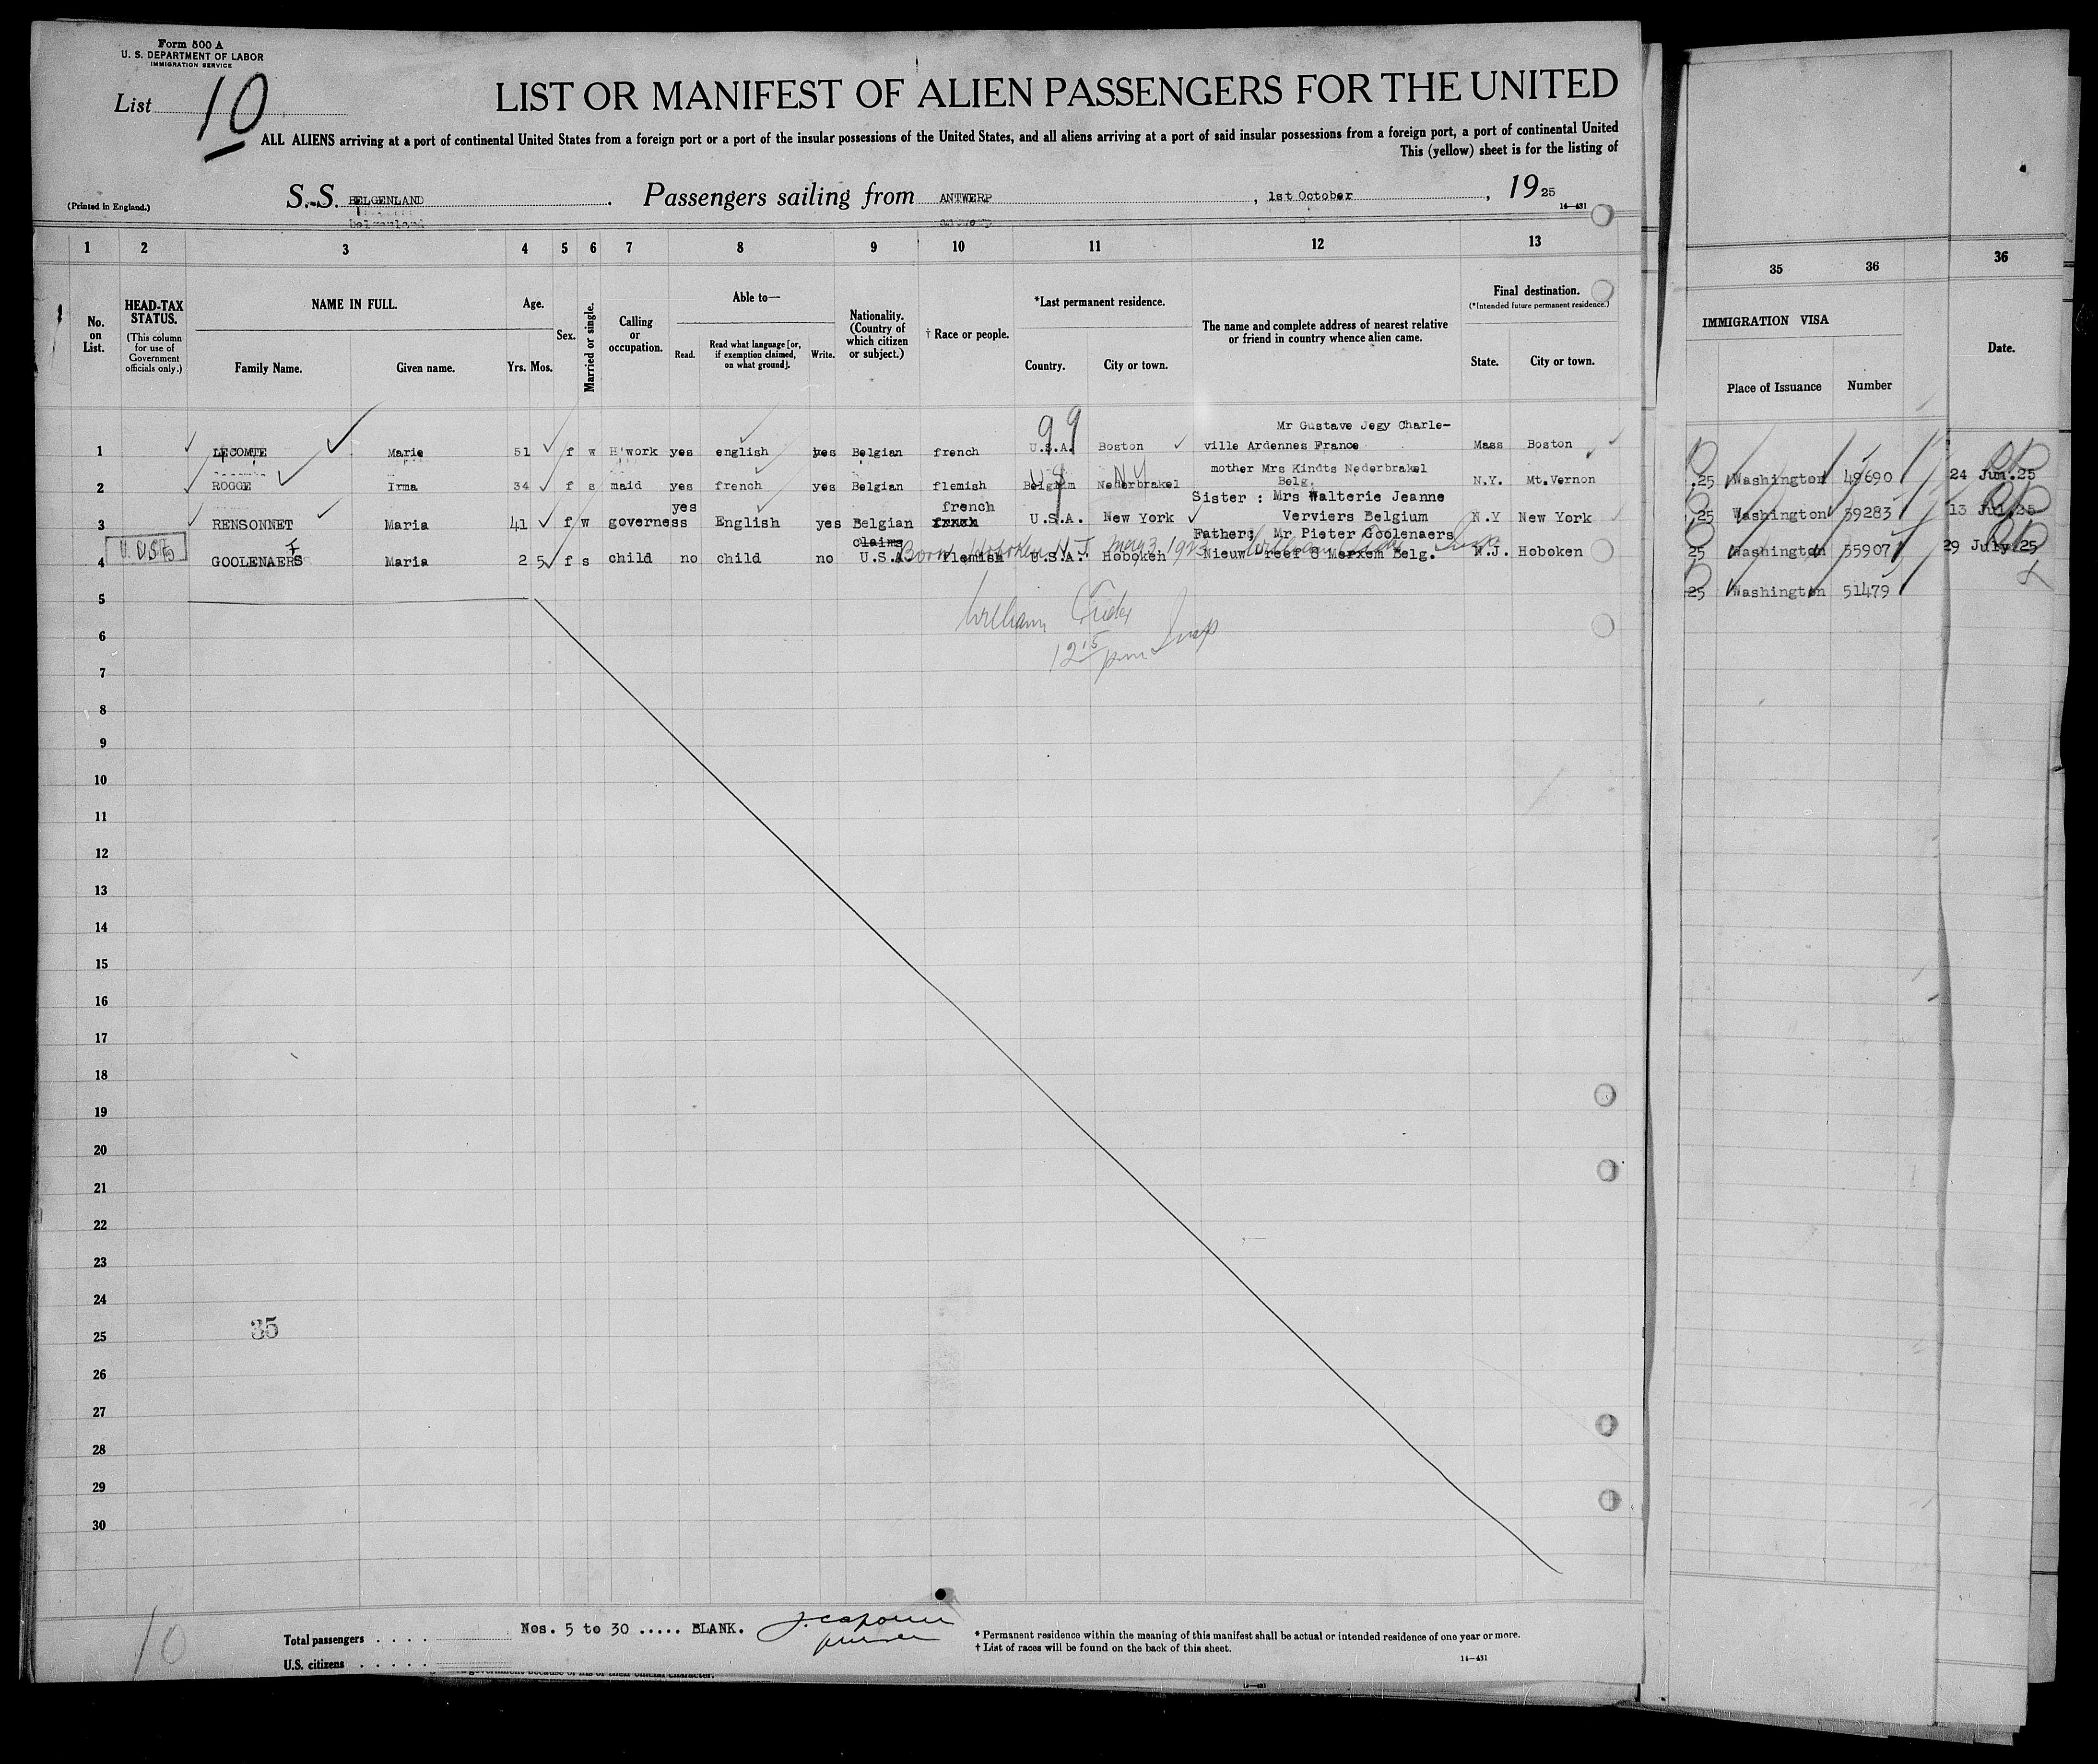 Form 500 A
U. S. DEPARTMENT OF LABOR
IMMIGRATION SERVICE
List 10
LIST OR MANIFEST OF ALIEN PASSENGERS FOR THE UNITED
ALL ALIENS arriving at a port of continental United States from a foreign port or a port of the insular possessions of the United States, and all aliens arriving at a port of said insular possessions from a foreign port, a port of continental United
This (yellow) sheet is for the listing of
(Printed in England.)
S.S. BELGENLAND . Passengers sailing from ANTWERP , 1st October , 1925
14—431
1 2 3 4 5 6 7 8 9 10 11 12 13
No. on List.
HEAD-TAX STATUS.
(This column for use of Government officials only.)
NAME IN FULL.
Family Name. Given name.
Age.
Yrs. Mos.
Sex.
Married or single.
Calling or occupation.
Able to—
Read. Read what language [or, if exemption claimed, on what ground]. Write.
Nationality. (Country of which citizen or subject.)
† Race or people.
*Last permanent residence.
Country. City or town.
The name and complete address of nearest relative or friend in country whence alien came.
Final destination.
(*Intended future permanent residence.)
State. City or town.
99
Mr Gustave Jegy Charle-
1 LECOMTE Marie 51 f w H'work yes english yes Belgian french U.S.A. Boston ville Ardennes France Mass Boston
mother Mrs Kindts Nederbrakel
2 ROGGE Irma 34 s maid yes french yes Belgian flemish Belgium Nederbrakel Belg. N.Y. Mt.Vernon
NY
yes french Sister : Mrs Walterie Jeanne
3 RENSONNET Maria 41 f w governess English yes Belgian U.S.A. New York Verviers Belgium N.Y New York
claims Born Hoboken N.J. May 3 1923 Father; Mr Pieter Goolenaers
4 GOOLENAERS Maria 2 5 f s child no child no U.S.A. Flemish U.S.A. Hoboken Nieuw reef 8 Merxem Belg. N.J. Hoboken
5
William
6
12 15 pm Insp
7
8
9
10
11
12
13
14
15
16
17
18
19
20
21
22
23
24
35
25
26
27
28
29
30
10
Total passengers . . . .
U.S. citizens . . . . .
Nos. 5 to 30 ..... BLANK.
* Permanent residence within the meaning of this manifest shall be actual or intended residence of one year or more.
† List of races will be found on the back of this sheet.
14—431
35 36 36
IMMIGRATION VISA
Place of Issuance Number Date.
25 Washington 49690 24 Jun.25
25 Washington 59283 13 Jul.25
25 Washington 55907 29 July.25
25 Washington 51479